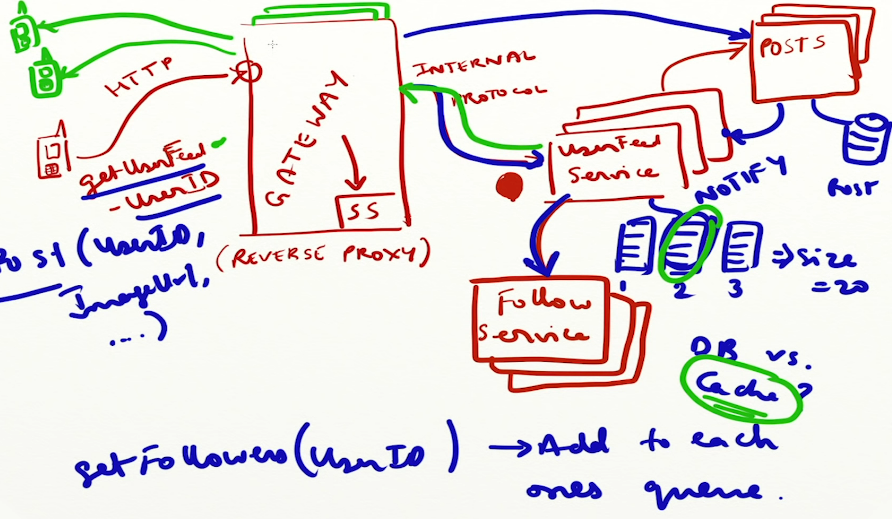 HTTP
getUserFeed
- UserID
Post (UserID,
ImageUrl,
....)
GATEWAY
SS
(REVERSE PROXY)
INTERNAL
PROTOCOL
POSTS
UserFeed
Service
NOTIFY
Post
1 2 3
⇒ Size
= 20
Follow
Service
DB vs.
Cache ?
getFollowers (UserID) → Add to each
ones queue.